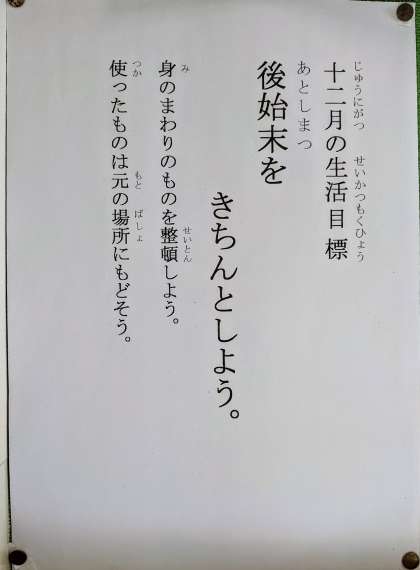 十二月の生活目標
じゅうにがつ せいかつもくひょう
後始末を
あとしまつ
きちんとしよう。
身のまわりのものを整頓しよう。
み せいとん
使ったものは元の場所にもどそう。
つか もと ばしょ